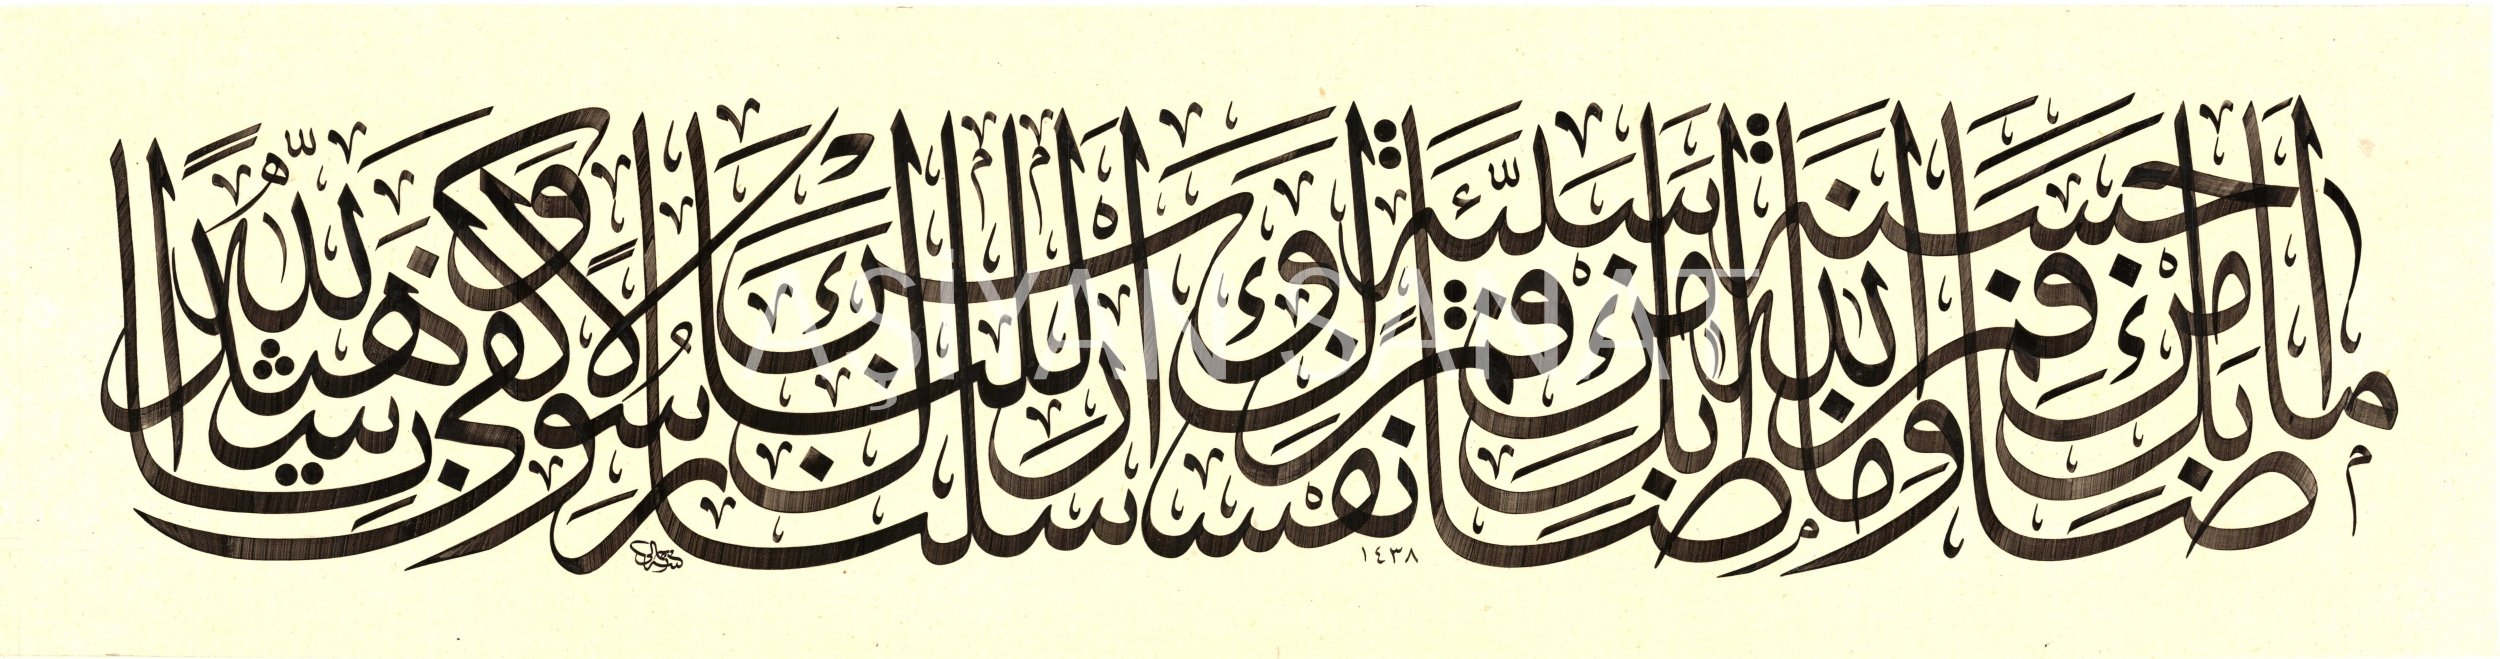 ما اصابك من حسنة فمن الله وما اصابك من سيئة فمن نفسك وارسلناك للناس رسولا وكفى بالله شهيدا
١٤٣٨
AŞİYAN SANAT